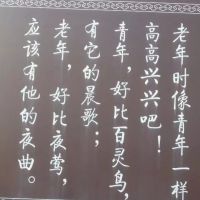 老年时像青年一样
高高兴兴吧！
青年，好比百灵鸟，
有它的晨歌；
老年，好比夜莺，
应该有他的夜曲。